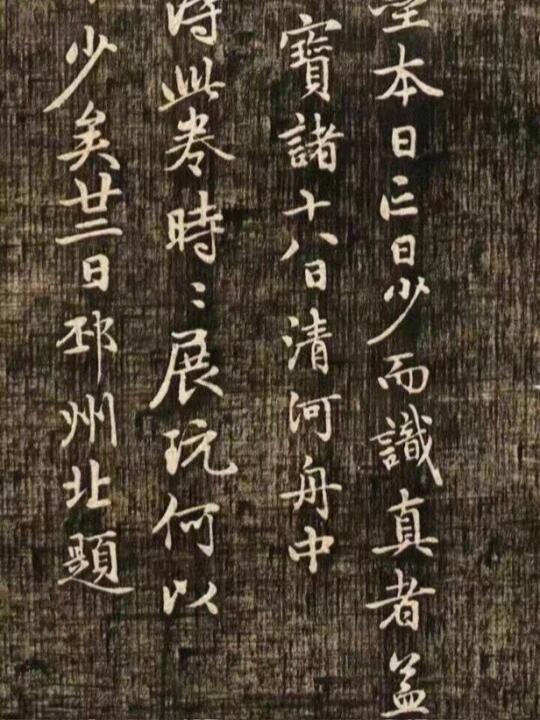 墨本日亡日少而識真者蓋
寶諸十八日清河舟中
得此卷時〻展玩何以
少矣廿二日邳州北題